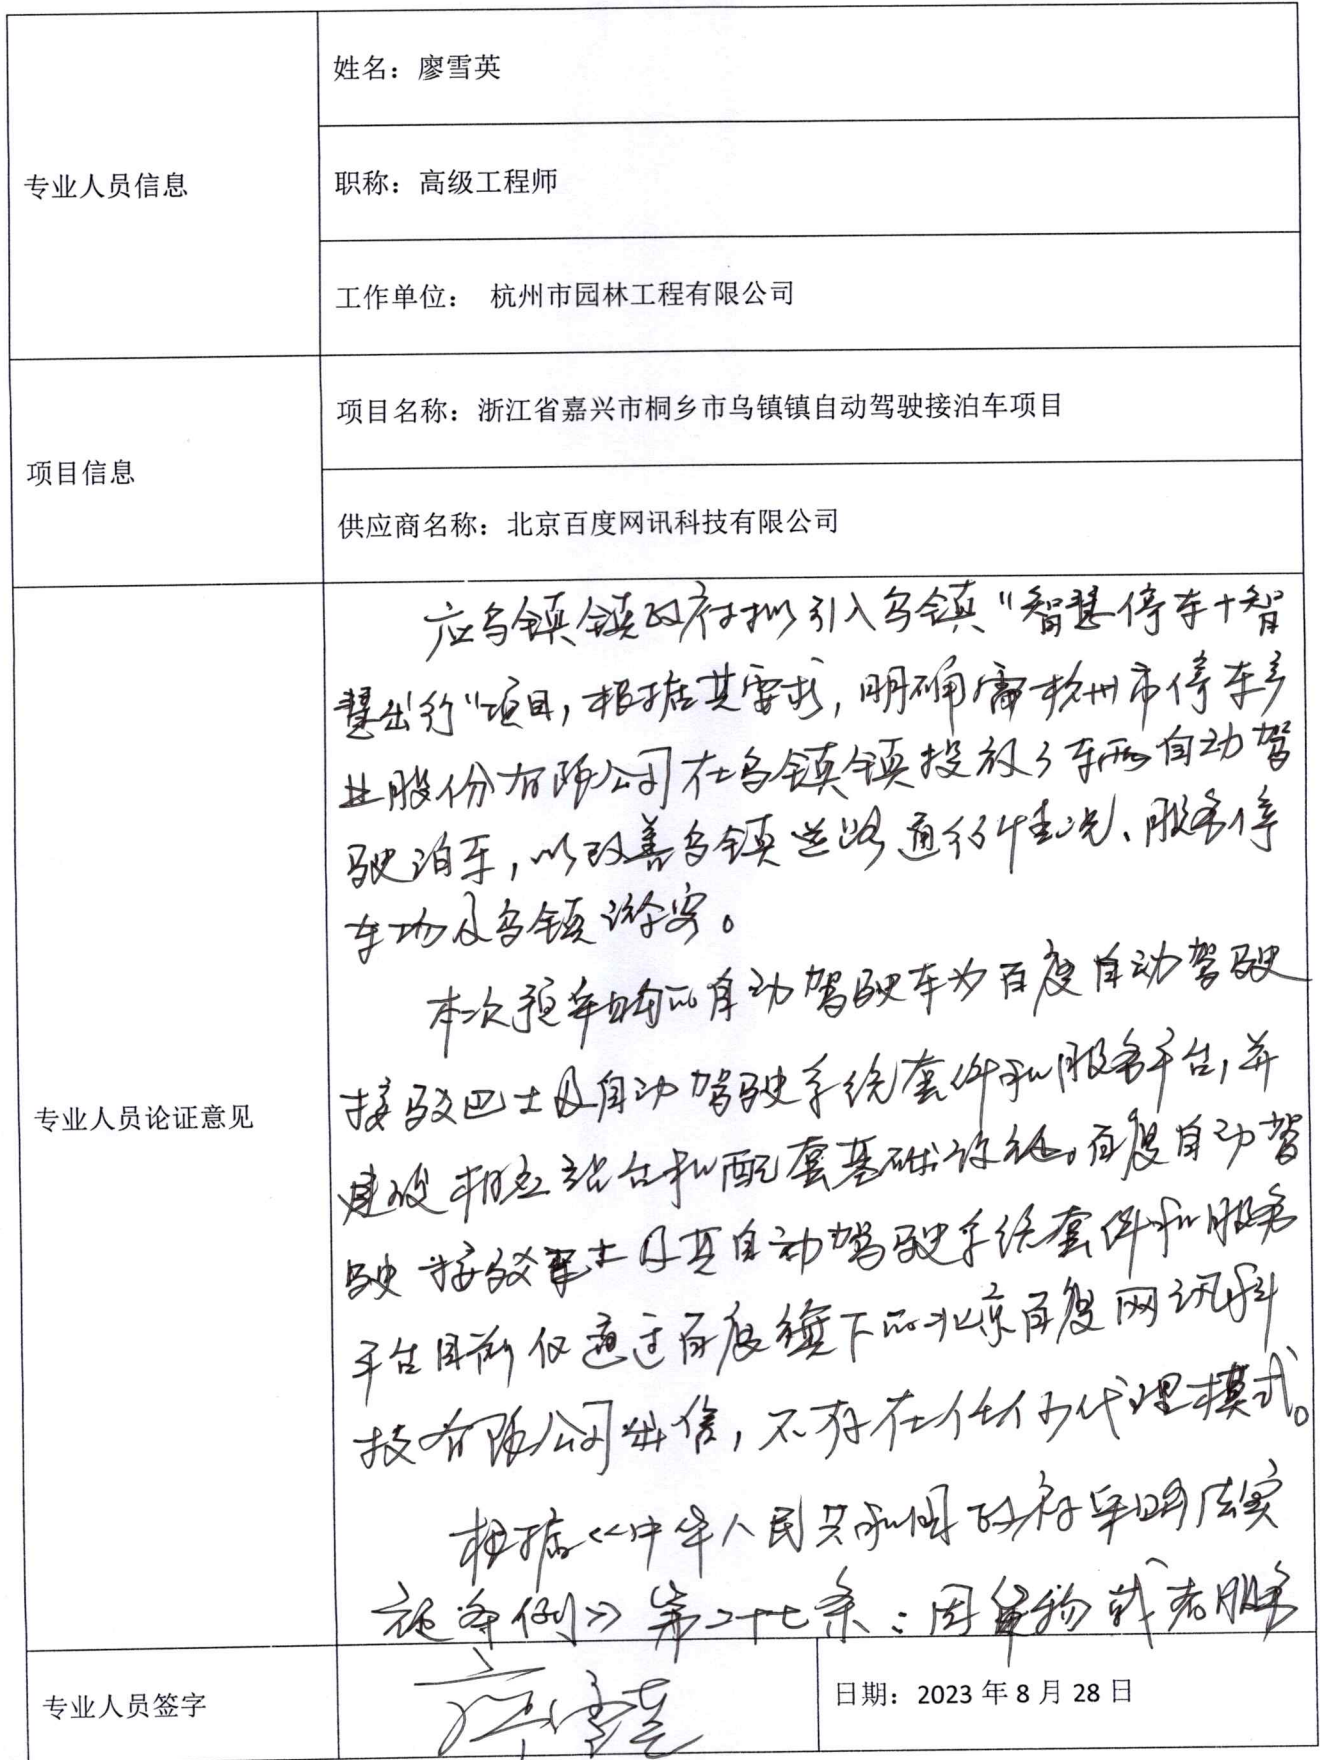 专业人员信息
姓名：廖雪英
职称：高级工程师
工作单位： 杭州市园林工程有限公司
项目信息
项目名称：浙江省嘉兴市桐乡市乌镇镇自动驾驶接泊车项目
供应商名称：北京百度网讯科技有限公司
专业人员论证意见
应乌镇镇政府拟引入乌镇“智慧停车+智
慧出行”项目，根据其要求，明确需杭州市停车产
业股份有限公司在乌镇镇投放3车辆自动驾
驶泊车，以改善乌镇道路通行情况、服务停
车场及乌镇游客。
本次预采购的自动驾驶车为百度自动驾驶
接驳巴士及自动驾驶系统套件和服务平台，并
建设相应站台和配套基础设施。百度自动驾
驶接驳巴士及其自动驾驶系统套件和服务
平台目前仅通过百度旗下的北京百度网讯科
技有限公司出售，不存在任何代理模式。
根据《中华人民共和国政府采购法实
施条例》第二十七条：因货物或者服务
专业人员签字
廖雪英
日期：2023 年 8 月 28 日